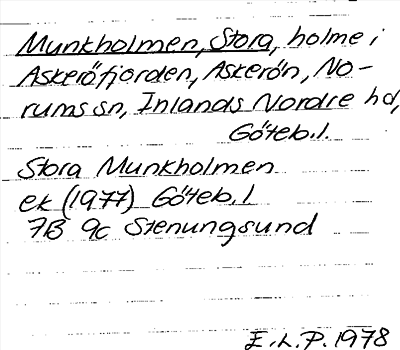 Munkholmen, Stora, holme i
Askeröfjorden, Askerön, No-
rums sn, Inlands Nordre hd,
Göteb.l.
Stora Munkholmen
ek (1977) Göteb.l
7B 9c Stenungsund
E.L.P. 1978